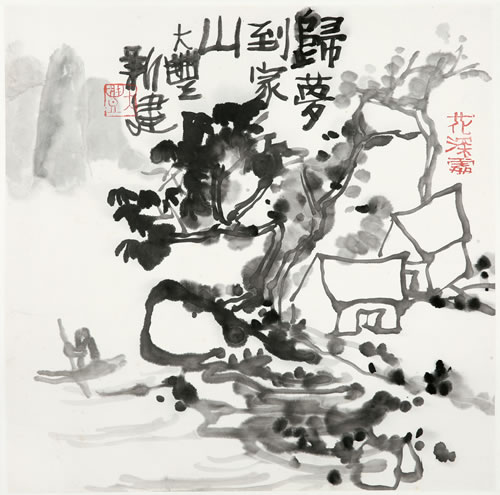 歸夢
到家
山
大豐
新建
花深